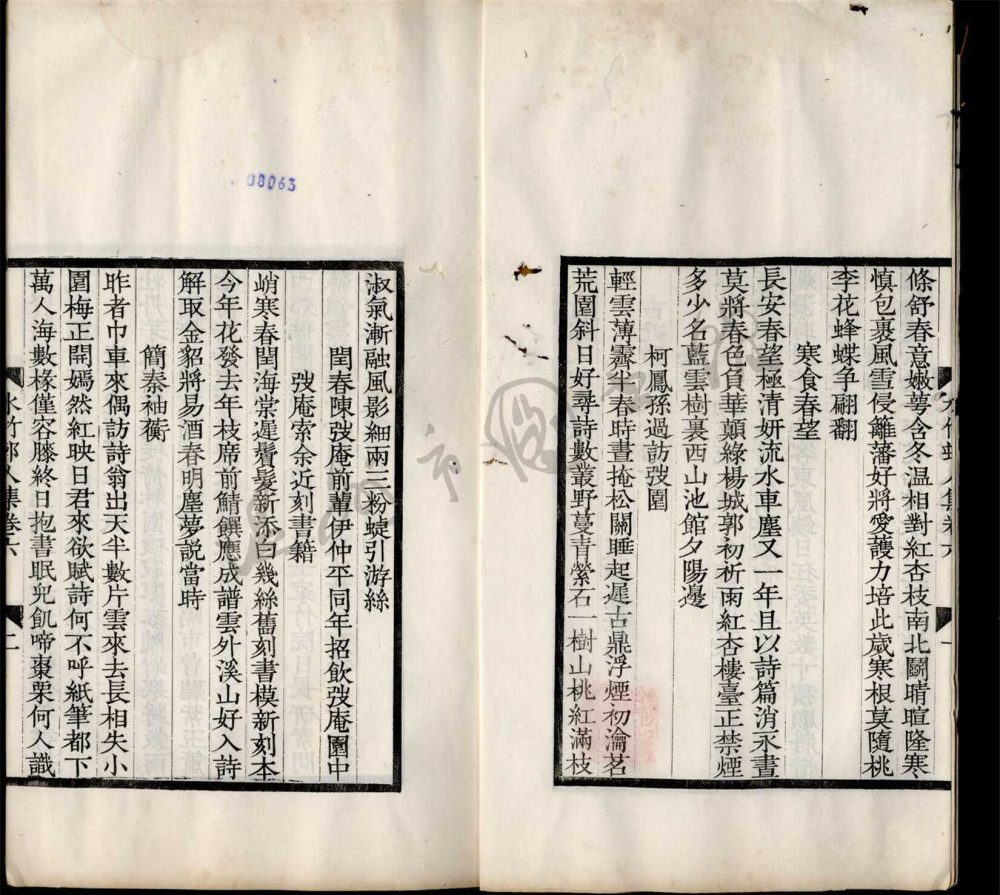 條舒春意嫩萼含冬溫相對紅杏枝南北鬭晴暄隆寒
慎包裹風雪侵籬藩好將愛護力培此歲寒根莫隨桃
李花蜂蝶争翩翻
寒食春望
長安春望極清妍流水車塵又一年且以詩篇消永晝
莫將春色負華顛綠楊城郭初祈雨紅杏樓臺正禁煙
多少名藍雲樹裏西山池館夕陽邊
柯鳳孫過訪弢園
輕雲薄霽半春時晝掩松關睡起遲古鼎浮煙初瀹茗
荒園斜日好尋詩數叢野蔓青縈石一樹山桃紅滿枝
淑氣漸融風影細兩三粉蜨引游絲
閏春陳弢庵前輩伊仲平同年招飲弢庵園中
弢庵索余近刻書籍
峭寒春閏海棠遲鬢髮新添白幾絲舊刻書模新刻本
今年花發去年枝席前鯖饌應成譜雲外溪山好入詩
解取金貂將易酒春明塵夢説當時
簡泰袖蘅
昨者巾車來偶訪詩翁出天半數片雲來去長相失小
園梅正開嫣然紅映日君來欲賦詩何不呼紙筆都下
萬人海數椽僅容膝終日抱書眠兒飢啼棗栗何人識
水竹邨人集卷六
二
08063